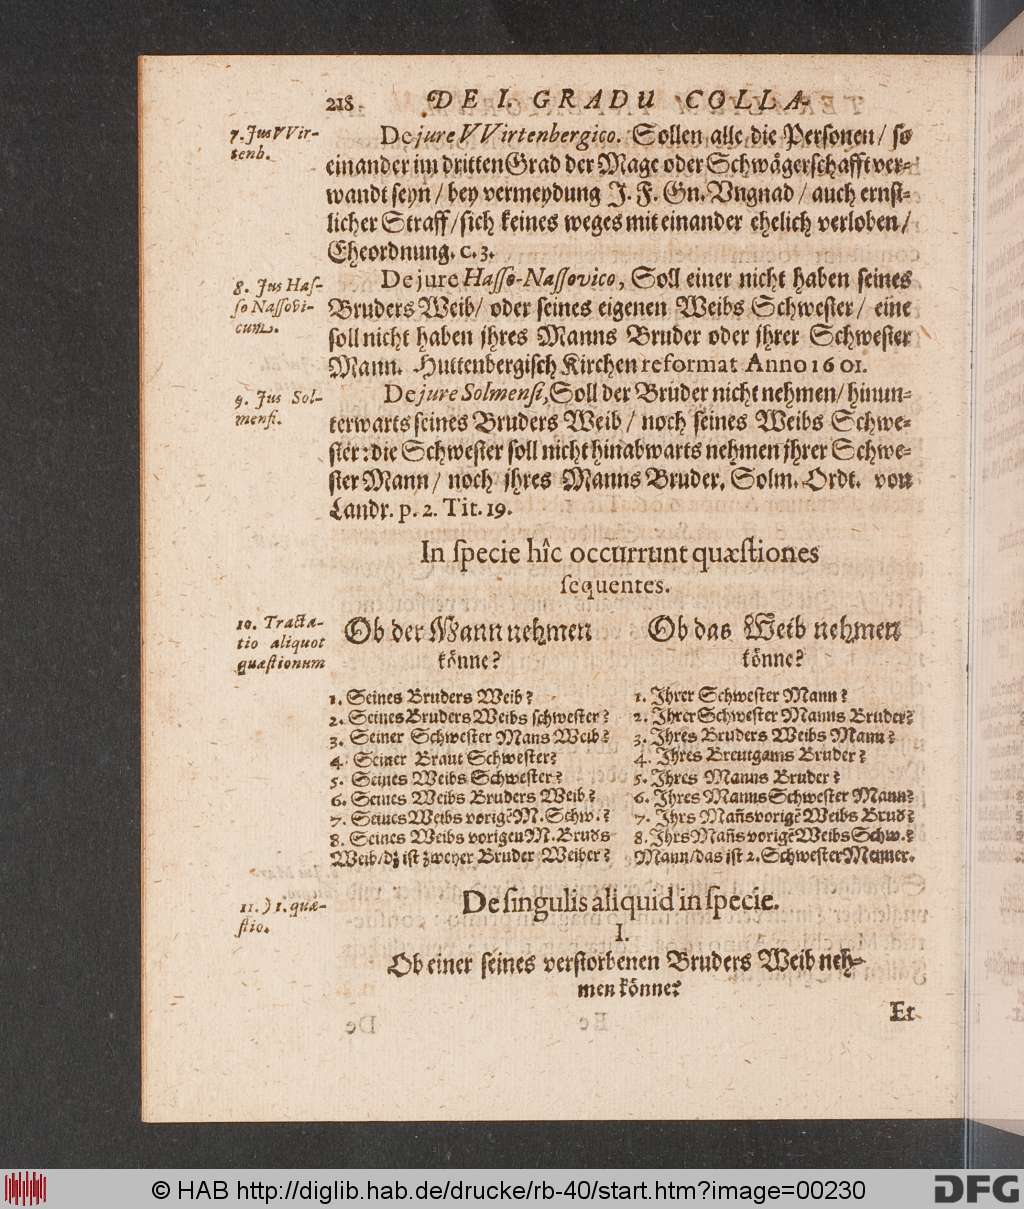 218 DE I. GRADU COLLA-
7. Jus VVir-
tenb.
De jure VVirtenbergico. Sollen alle die Personen / so
einander im dritten Grad der Mage oder Schwägerschafft ver-
wandt seyn / bey vermeydung J. F. Gn. Vngnad / auch ernst-
licher Straff / sich keines weges mit einander ehelich verloben /
Eheordnung. c. 3.
8. Jus Has-
so Nassovi-
cum.
De jure Hasso-Nassovico, Soll einer nicht haben seines
Bruders Weib / oder seines eigenen Weibs Schwester / eine
soll nicht haben jhres Manns Bruder oder jhrer Schwester
Mann. Huttenbergisch Kirchen reformat Anno 1601.
9. Jus Sol-
mensi.
De jure Solmensi, Soll der Bruder nicht nehmen / hinun-
terwarts seines Bruders Weib / noch seines Weibs Schwe-
ster: die Schwester soll nicht hinabwarts nehmen jhrer Schwe-
ster Mann / noch jhres Manns Bruder. Solm. Ordt. von
Landr. p. 2. Tit. 19.
In specie hîc occurrunt quæstiones
sequentes.
10. Tracta-
tio aliquot
quæstionum
Ob der Mann nehmen
könne?
1. Seines Bruders Weib?
2. Seines Bruders Weibs schwester?
3. Seiner Schwester Mans Weib?
4. Seiner Braut Schwester?
5. Seines Weibs Schwester?
6. Seines Weibs Bruders Weib?
7. Seines Weibs vorigẽ M. Schw.?
8. Seines Weibs vorigen M. Bruds
Weib / dz ist zweyer Bruder Weiber?
Ob das Weib nehmen
könne?
1. Jhrer Schwester Mann?
2. Jhrer Schwester Manns Bruder?
3. Jhres Bruders Weibs Mann?
4. Jhres Breutgams Bruder?
5. Jhres Manns Bruder?
6. Jhres Manns Schwester Mann?
7. Jhrs Mañs vorigẽ Weibs Brud?
8. Jhrs Mañs vorigẽ Weibs Schw.?
Mann / das ist 2. Schwester Menner.
De singulis aliquid in specie.
11.) 1. quæ-
stio.
I.
Ob einer seines verstorbenen Bruders Weib neh-
men könne?
Et
© HAB http://diglib.hab.de/drucke/rb-40/start.htm?image=00230
DFG